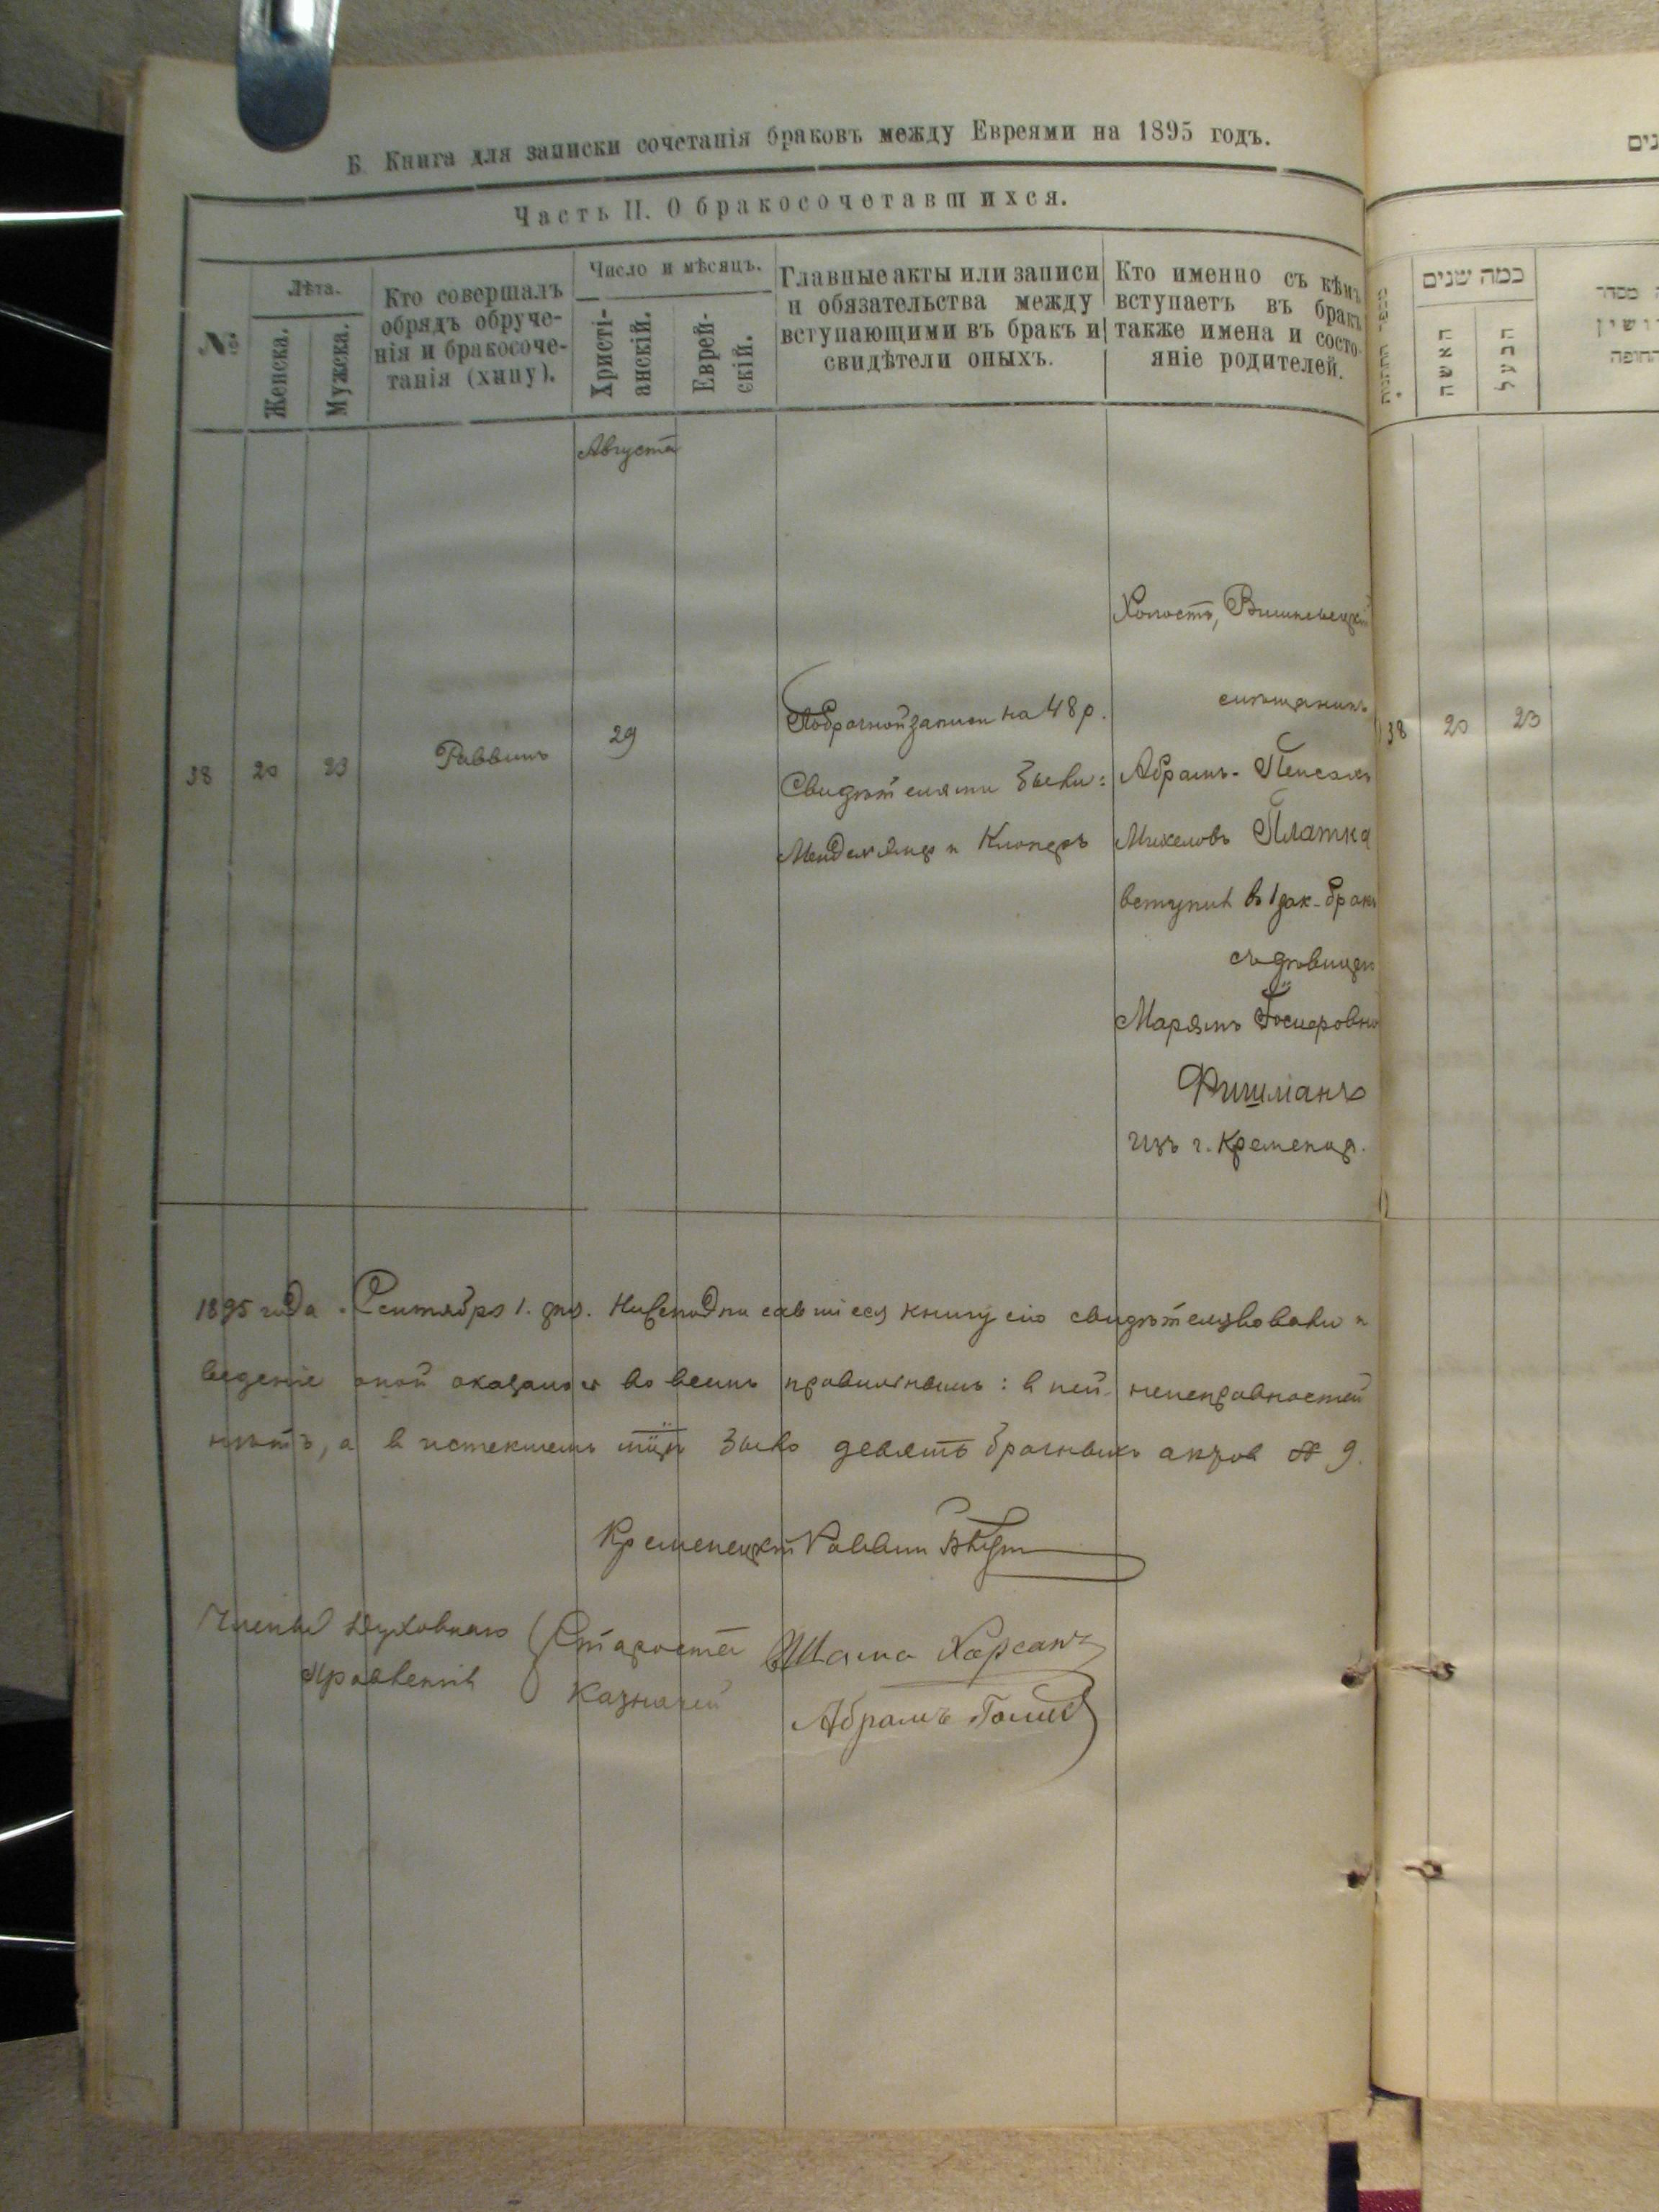 Б. Книга для записки сочетанія браковъ между Евреями на 1895 годъ.
Часть II. О бракосочетавшихся.
№
Лѣта.
Женска.
Мужска.
Кто совершалъ
обрядъ обруче-
нія и бракосоче-
танія (хипу).
Число и мѣсяцъ.
Христі-
анскій.
Еврей-
скій.
Главные акты или записи
и обязательства между
вступающими въ бракъ и
свидѣтели оныхъ.
Кто именно съ кѣмъ
вступаетъ въ бракъ
также имена и состо-
яніе родителей.
Августа
38
20
23
Раввинъ
29
Добрачной записи на 48 р.
Свидѣтелями были:
и
Холостъ, Вишневецкій
мѣщанинъ
Абрамъ-Пейсахъ
Михеловъ Платка
вступил в 1 зак. бракъ
съ дѣвицею
Марямъ Іосиеровно
Фишманъ
изъ г. Кременца.
1895 года Сентября 1. дня. Нижеподписавшіеся книгу сію свидѣтельствовали и
веденіе оной оказалось во всемъ правильнымъ: в ней неисправностей
нѣтъ, а в истекшемъ м-цѣ было девять брачныхъ актов № 9.
Кременецкій Раввин
Члены Духовнаго
Правленія
Староста Шама Харсанъ
Казначей Абрамъ
כמה שנים
האשה
הבעל
38
20
23